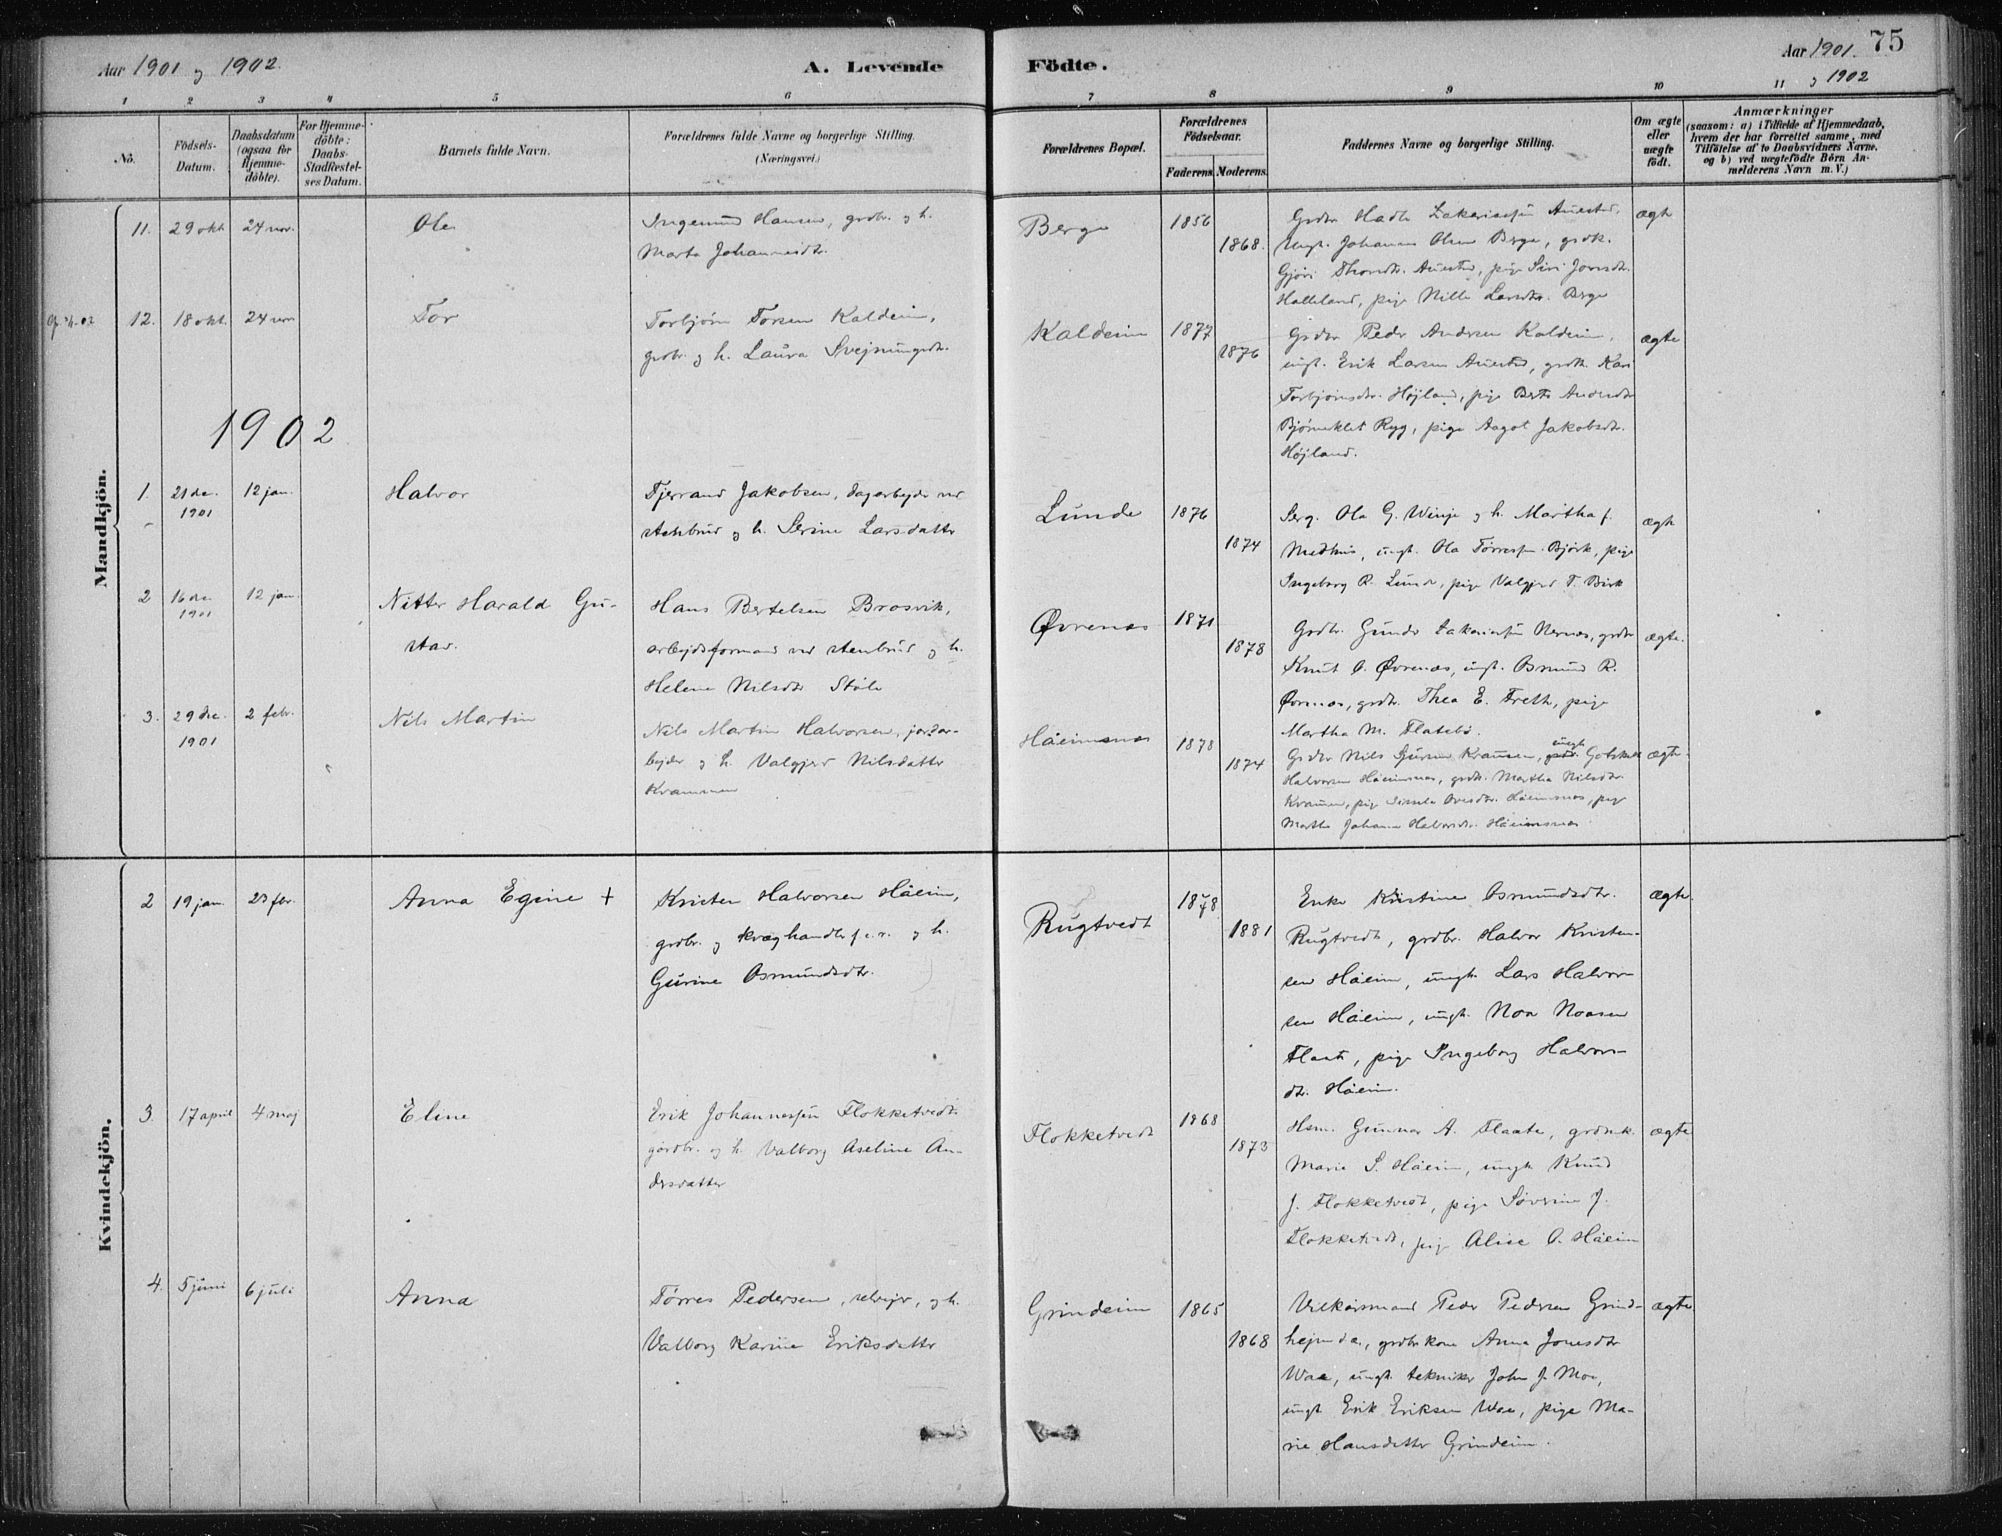 Aar 1901 og 1902.
A. Levende
Födte.
Aar 1901.
75
og 1902
1 2 3 4 5 6 7 8 9 10 11
No.
Födsels-
Datum.
Daabsdatum
(ogsaa for
Hjemme-
döbte).
For Hjemme-
döbte:
Daabs-
Stadfæstel-
ses Datum.
Barnets fulde Navn.
Forældrenes fulde Navne og borgerlige Stilling.
(Næringsvei.)
Forældrenes Bopæl.
Forældrenes
Födselsaar.
Faderens. Moderens.
Faddernes Navne og borgerlige Stilling.
Om ægte
eller
uægte
födt.
Anmærkninger
(saasom: a) i Tilfælde af Hjemmedaab,
hvem der har forrettet samme, med
Tilföielse af to Daabsvidners Navne,
og b) ved uægtefödte Börn An-
melderens Navn m. V.)
Mandkjön.
11. 29 okt 24 nov.
Ole
Ingemund Hansen, grdbr. og h.
Marta Johannesdtr.
Berge
1856
1868.
Grdbr Hadle Zakariassen Auestad,
Ungk. Johannes Olsen Berge, grdk.
Gjöri Auestad, pige Siri Jonsdtr.
Halleland, pige Nille Larsdtr. Berge
ægt
12. 18 okt. 24 nov
Tor
Torbjörn Torsen Kaldeim,
grdbr. og h. Laura Svejnungsdtr.
Kaldeim
1877
1876
Grdbr Peder Andersen Kaldeim,
ungk. Erik Larsen Auestad, grdk. Kari
Torbjörnsdtr. Höjland, pige Berte Andersdtr
Björneklet Ryg, pige Aagot Jakobsdtr.
Höjland.
ægte
1902
1. 21 dec. 12 jan.
1901
Halvor
Tjerrand Jakobsen, dagarbejder ved
stenbrud og h. Serine Larsdatter
Lunde
1876
1874
Serg. Ola G. Winje og h. Martha f.
Medhus, ungk. Ola Törresen Björk, pige
Ingeborg R. Lunde, pige Valgjerd T. Birk
ægte
2 16 dec 12 jan.
1901
Nitter Harald Gu-
stav.
Hans Bertelsen Brosvik,
arbejdsformand ved stenbrud og h.
Helene Nilsdtr Støle
Øvrenes
1871
1878
Grdbr. Gunder Zakariassen Nernes, grdbr
Knut O. Øvrenæs, ungk. Osmund R.
Øvrenæs, grdk. Thea E. Treth, pige
Martha M. Flatebö.
ægte.
3. 29 dec. 2 febr.
1901
Nils Martin
Nils Martin Halvorsen, jordar-
bejder og h. Valgjerd Nilsdatter
Krammen
Håeimsnæs
1878
1874
Grdbr Nils Gursen Kramen, ungk. Gotskalk
Halvorsen Håeimsnæs, grdk. Martha Nilsdtr.
Kramen, pige Sissela Ovesdtr. Håeimsnæs, pige
Martha Johanne Halvorsdtr. Håeimsnæs
ægte
Kvindekjön.
2 19 jan. 23 febr.
Anna Egine +
Kristen Halvorsen Håeim,
grdbr. og kvæghandler f.e.r. og h.
Gurine Osmundsdtr.
Rugtvedt
1878
1881
Enke Kristine Osmundsdtr.
Rugtvedt, grdbr. Halvor Kristen-
sen Håeim, ungk. Lars Halvor-
sen Håeim, ungk. Noa Noasen
Flaate, pige Ingeborg Halvors-
dtr. Håeim.
ægte
3. 17 april 4 maj
Eline
Erik Johannessen Flokketvedt
gårdbr. og h. Valborg Aseline An-
dersdatter
Flokketvedt
1868
1873
Hsm. Gunnar A. Flaate, grdmk.
Marie S. Håeim, ungk. Knud
J. Flokketvedt, pige Søvrine J.
Flokketvedt, pige Alise O. Håeim
ægte
4. 5 juni 6 juli
Anna
Törres Pedersen, selvejer, og h.
Valborg Karine Eriksdatter
Grindeim
1865
1868
Vilkårsmand Peder Pedersen Grind-
hejmdal, grdbrkone Anna Jonesdtr
Waa, ungk. tekniker John J. Moe,
ungk Erik Eriksen Waa, pige Ma-
rie Hansdatter Grindeim.
ægte